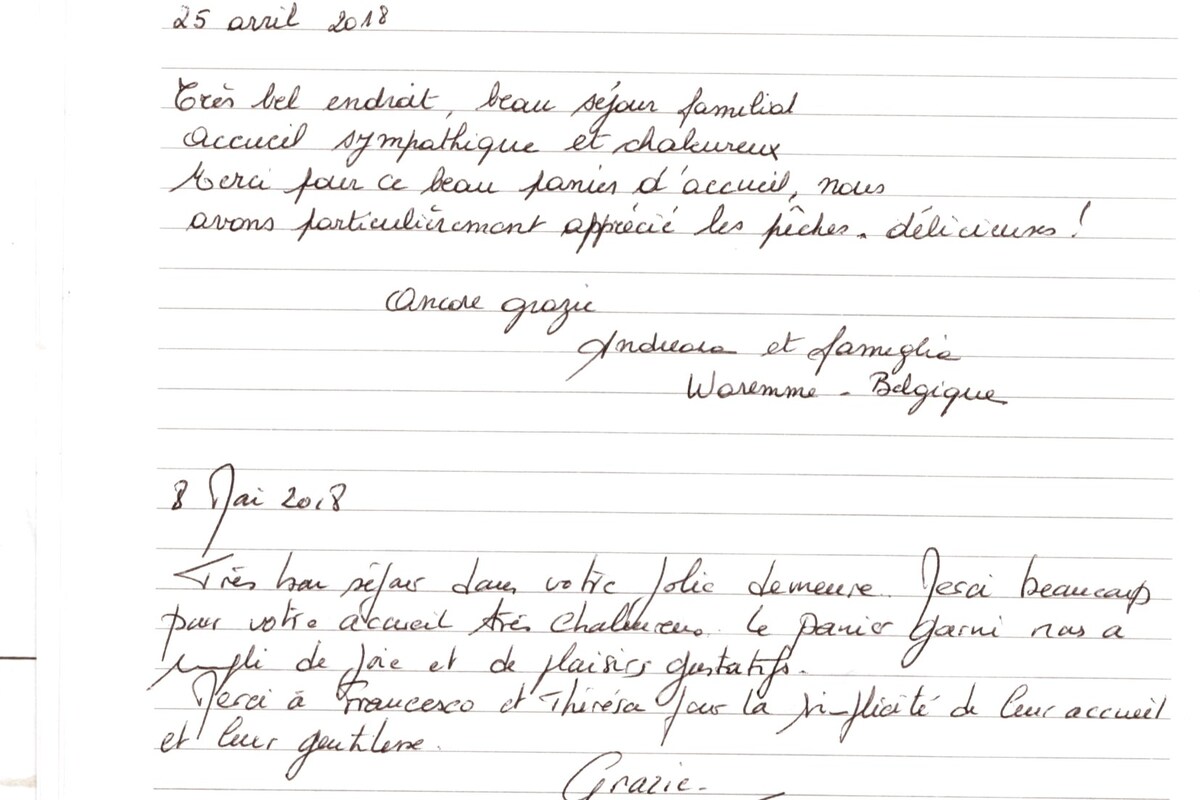 25 avril 2018
Très bel endroit, beau séjour familial
Accueil sympathique et chaleureux
Merci pour ce beau panier d'accueil, nous
avons particulièrement apprécié les pêches. délicieuses !
Ancore grazie
et famiglia
Waremme - Belgique
8 Mai 2018
Très bon séjour dans votre jolie demeure. Merci beaucoup
pour votre accueil très chaleureux. Le panier garni nous a
rempli de joie et de plaisirs gustatifs.
Merci à Francesco et Thérésa pour la simplicité de leur accueil
et leur gentillesse.
Grazie.